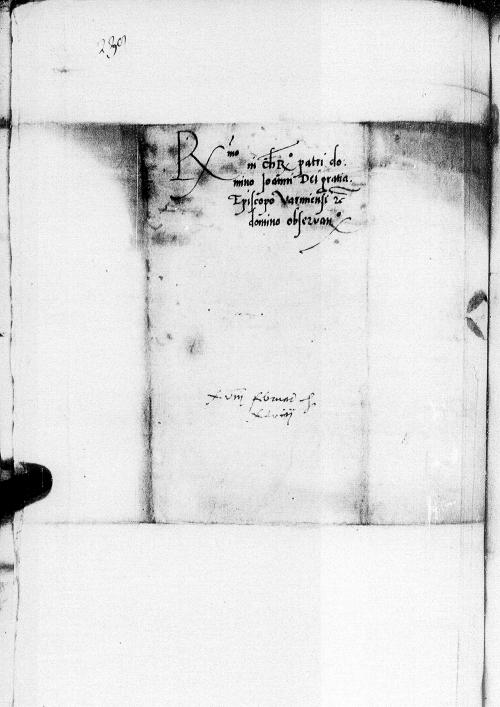 230
Rx͞mo
in chro patri do.
mino Joanni Dei gratia.
Episcopo Varmiensi zc
domino observan